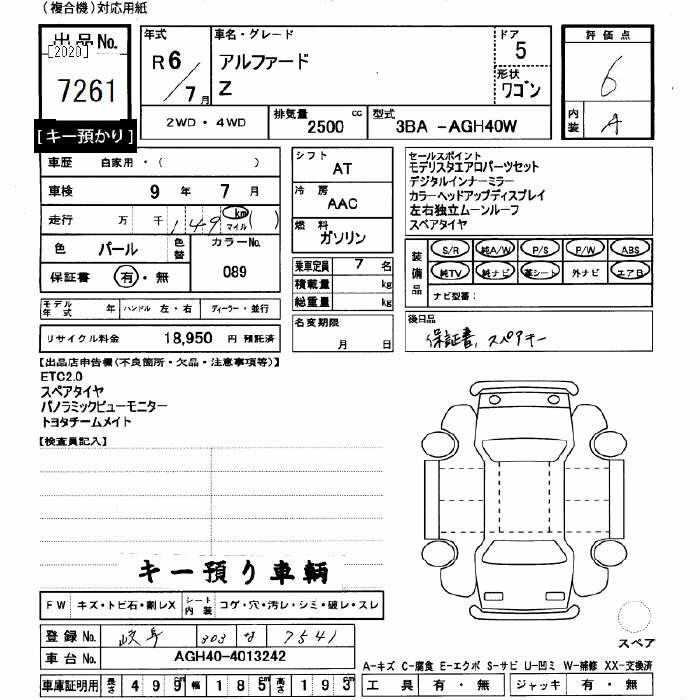 (複合機)対応用紙
出品No.
[2020]
7261
【キー預かり】
年式
R6/7月
車名・グレード
アルファード
Z
ドア
5
形状
ワゴン
評価点
6
内装
A
2WD・4WD
排気量
2500 cc
型式
3BA -AGH40W
車歴 自家用・( )
車検 9年 7月
走行 万 千 149 km マイル ( )
色 パール 色替
カラーNo.
089
保証書 有・無
シフト
AT
冷房
AAC
燃料
ガソリン
乗車定員 7 名
積載量 kg
総重量 kg
セールスポイント
モデリスタエアロパーツセット
デジタルインナーミラー
カラーヘッドアップディスプレイ
左右独立ムーンルーフ
スペアタイヤ
装備品
S/R 純A/W P/S P/W ABS
純TV 純ナビ 革シート 外ナビ エアB
ナビ型番:
モデル年式 年 ハンドル 左・右 ディーラー・並行
リサイクル料金 18,950 円 預託済
名変期限
月 日
後日品
保証書、スペアキー
【出品店申告欄(不良箇所・欠品・注意事項等)】
ETC2.0
スペアタイヤ
パノラミックビューモニター
トヨタチームメイト
【検査員記入】
キー預り車輌
FW キズ・トビ石・割レX シート内装 コゲ・穴・汚レ・シミ・破レ・スレ
スペア
登録No. 岐阜 303 な 7541
車台No. AGH40-4013242
A-キズ C-腐食 E-エクボ S-サビ U-凹ミ W-補修 XX-交換済
車庫証明用 長さ 499 幅 185 高さ 193
工具 有・無 ジャッキ 有・無